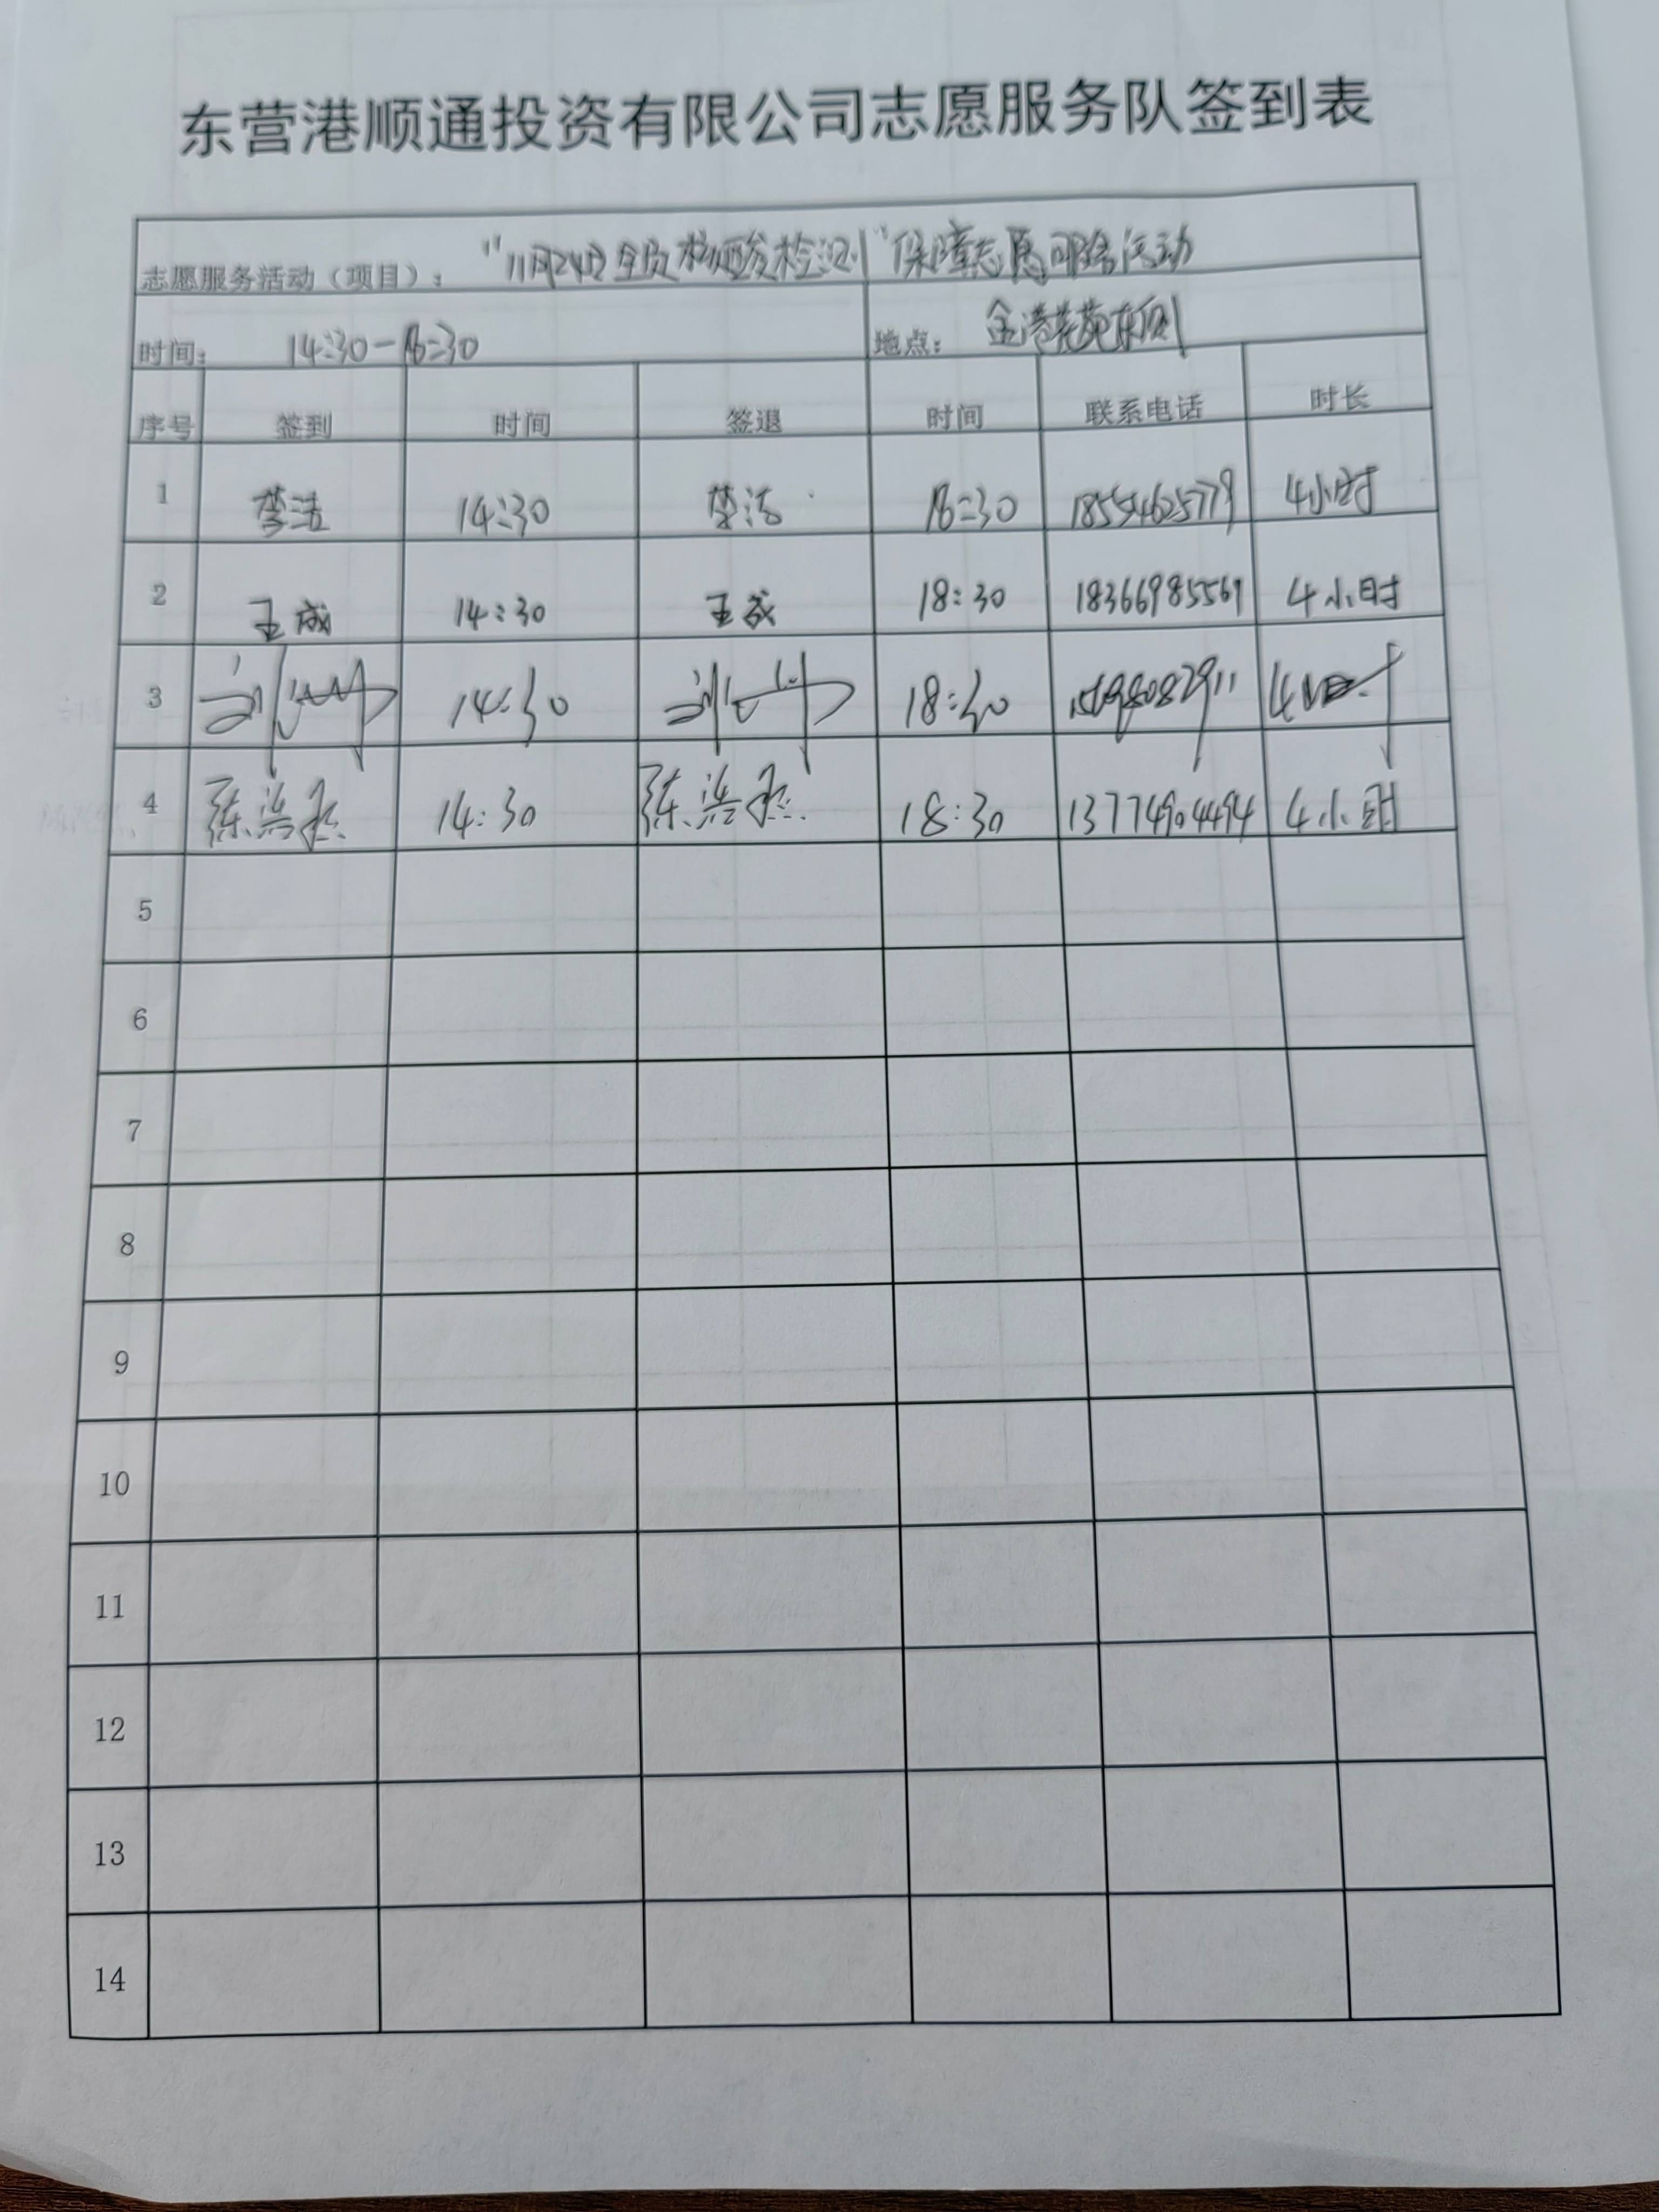 东营港顺通投资有限公司志愿服务队签到表
志愿服务活动（项目）： “11月24日全员核酸检测”保障志愿服务活动
时间： 14:30-18:30 地点： 金港花苑东侧
序号 签到 时间 签退 时间 联系电话 时长
1 李洁 14:30 李洁 18:30 18554625779 4小时
2 王成 14:30 王成 18:30 18366985569 4小时
3 14:30 18:30 4小时
4 14:30 18:30 13774904494 4小时
5
6
7
8
9
10
11
12
13
14